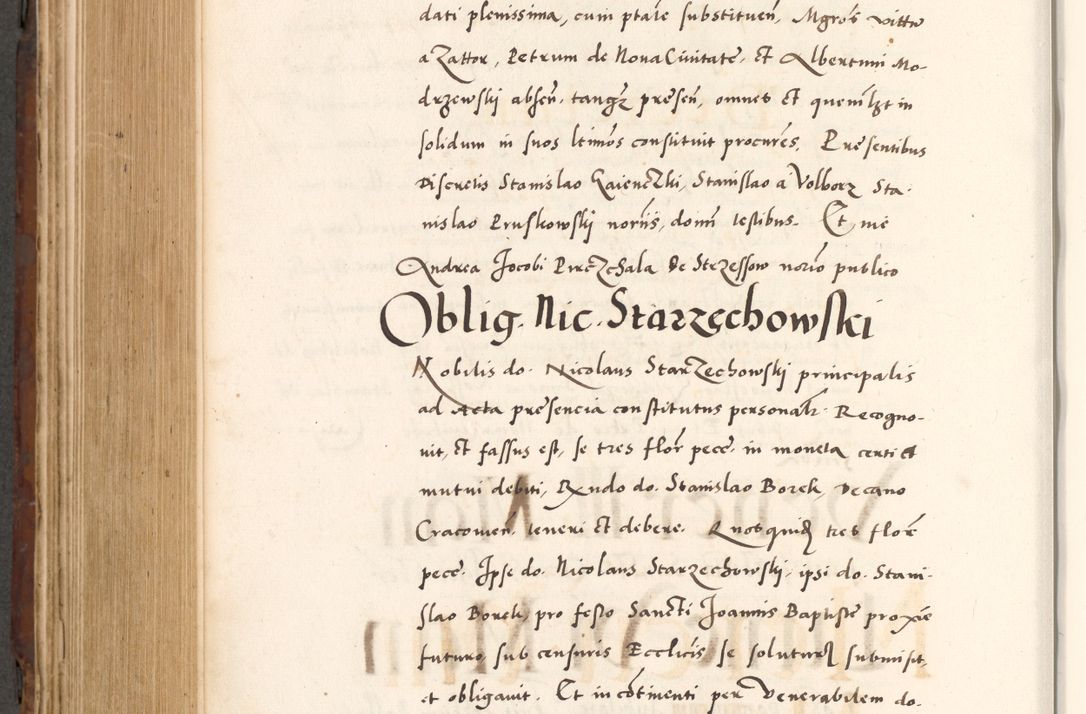 dati plenissima, cum ptāte substituen̄, Mgros vitto
a Zattor, Petrum de Noua Ciuitate, et Albertum Mo-
drzewski absen̄. tanq̄ presen̄, omnes et quemlꝫt in
solidum in suos ltimos constituit procures. Presentibus
Discretis Stanislao Gaienczki, Stanislao a Volborz Sta-
nislao Pruskowski noriis, domi testibus. Et me
Andrea Jacobi Pirczchala de Strzessow norio publico
Oblig. Nic. Starzechowski
Nobilis do. Nicolaus Starzechowski principalis
ad Acta presencia constitutus personalr. Recogno-
uit, et fassus est, se tres flor pece. in moneta certi et
mutui debiti, Rndo do. Stanislao Borek, Decano
Cracouien̄. teneri et debere. Quosquid tres flore
pece. Ipse do. Nicolaus Starzechowski, ipsi do. Stani-
slao Borek, pro festo Sancti Joannis Baptiste proxie
futuro, sub censuris Ecclicis se soluturꝝ submisit,
et obligauit. Et in cōtinenti per Venerabilem do.